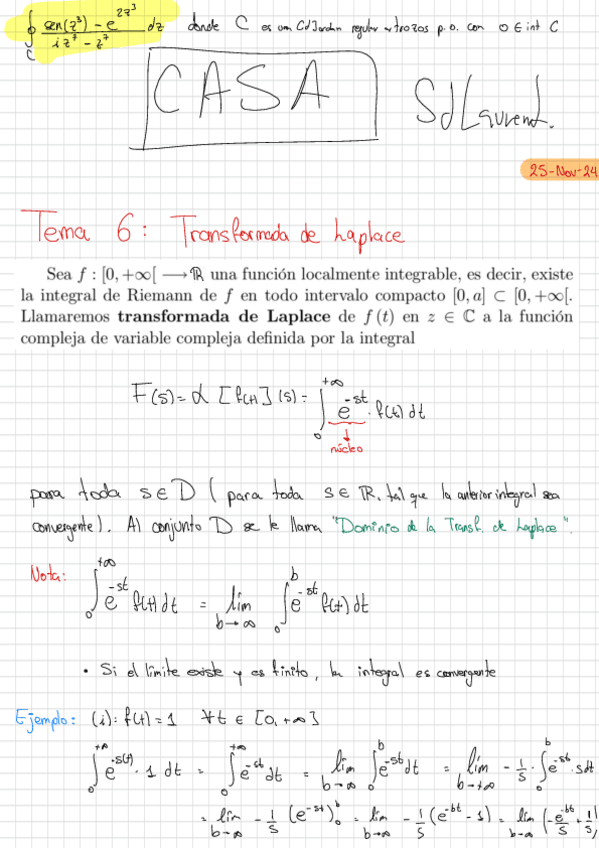 ∮_C (sen(z³) - e^{2z³}) / (i z⁷ - z⁷) dz donde C es una CdJordan regular a trozos p.o. con 0 ∈ int C
CASA
SdLaurent.
25-Nov-24
Tema 6: Transformada de Laplace
Sea f : [0, +∞[ ⟶ ℝ una función localmente integrable, es decir, existe
la integral de Riemann de f en todo intervalo compacto [0, a] ⊂ [0, +∞[.
Llamaremos transformada de Laplace de f (t) en z ∈ ℂ a la función
compleja de variable compleja definida por la integral
F(s) = L [f(t)] (s) = ∫_0^{+∞} e^{-st} · f(t) dt
núcleo
para toda s ∈ D ( para toda s ∈ ℝ, tal que la anterior integral sea
convergente). Al conjunto D se le llama "Dominio de la Transf. de Laplace".
Nota: ∫_0^{+∞} e^{-st} f(t) dt = lim_{b→∞} ∫_0^b e^{-st} f(t) dt
• Si el límite existe y es finito, la integral es convergente
Ejemplo: (i): f(t) = 1 ∀t ∈ [0, +∞]
∫_0^{+∞} e^{-s(t)} · 1 dt = ∫_0^{+∞} e^{-st} dt = lim_{b→∞} ∫_0^b e^{-st} dt = lim_{b→+∞} - 1/s · ∫_0^b e^{-st} · s dt
= lim_{b→∞} - 1/s (e^{-st})_0^b = lim_{b→∞} - 1/s (e^{-bt} - 1) = lim_{b→∞} (- e^{-bt}/s + 1/s)